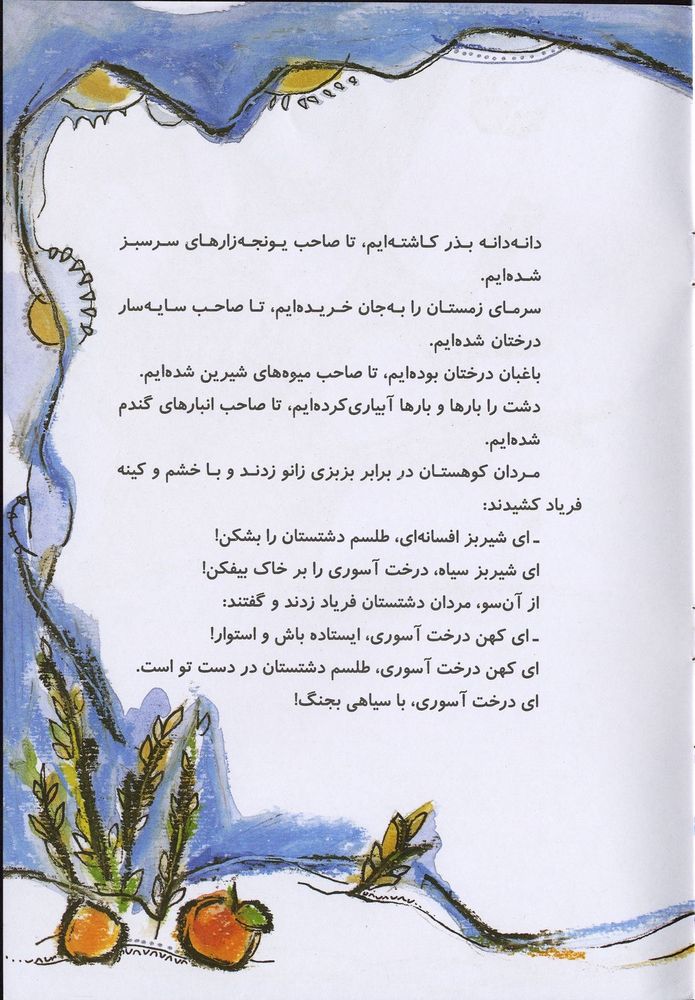 دانه‌دانه بذر کاشته‌ایم، تا صاحب یونجه‌زارهای سرسبز
شده‌ایم.
سرمای زمستان را به‌جان خریده‌ایم، تا صاحب سایه‌سار
درختان شده‌ایم.
باغبان درختان بوده‌ایم، تا صاحب میوه‌های شیرین شده‌ایم.
دشت را بارها و بارها آبیاری‌کرده‌ایم، تا صاحب انبارهای گندم
شده‌ایم.
مردان کوهستان در برابر بزبزی زانو زدند و با خشم و کینه
فریاد کشیدند:
ـ ای شیربز افسانه‌ای، طلسم دشتستان را بشکن!
ای شیربز سیاه، درخت آسوری را بر خاک بیفکن!
از آن‌سو، مردان دشتستان فریاد زدند و گفتند:
ـ ای کهن درخت آسوری، ایستاده باش و استوار!
ای کهن درخت آسوری، طلسم دشتستان در دست تو است.
ای درخت آسوری، با سیاهی بجنگ!